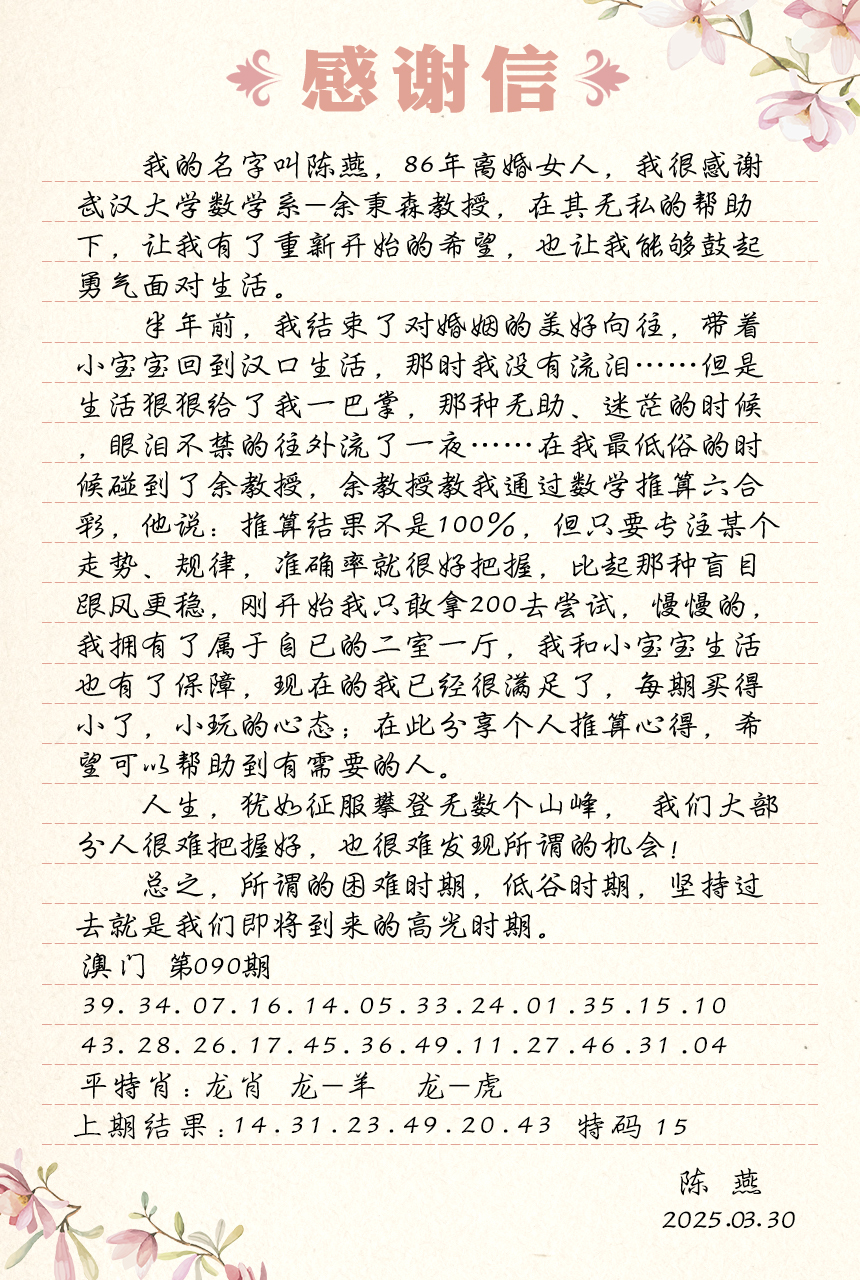 感谢信
我的名字叫陈燕，86年离婚女人，我很感谢
武汉大学数学系—余秉森教授，在其无私的帮助
下，让我有了重新开始的希望，也让我能够鼓起
勇气面对生活。
半年前，我结束了对婚姻的美好向往，带着
小宝宝回到汉口生活，那时我没有流泪……但是
生活狠狠给了我一巴掌，那种无助、迷茫的时候
，眼泪不禁的往外流了一夜……在我最低俗的时
候碰到了余教授，余教授教我通过数学推算六合
彩，他说：推算结果不是100%，但只要专注某个
走势、规律，准确率就很好把握，比起那种盲目
跟风更稳，刚开始我只敢拿200去尝试，慢慢的，
我拥有了属于自已的二室一厅，我和小宝宝生活
也有了保障，现在的我已经很满足了，每期买得
小了，小玩的心态；在此分享个人推算心得，希
望可以帮助到有需要的人。
人生，犹如征服攀登无数个山峰， 我们大部
分人很难把握好，也很难发现所谓的机会！
总之，所谓的困难时期，低谷时期，坚持过
去就是我们即将到来的高光时期。
澳门 第090期
39.34.07.16.14.05.33.24.01.35.15.10
43.28.26.17.45.36.49.11.27.46.31.04
平特肖：龙肖 龙—羊 龙—虎
上期结果：14.31.23.49.20.43 特码 15
陈 燕
2025.03.30